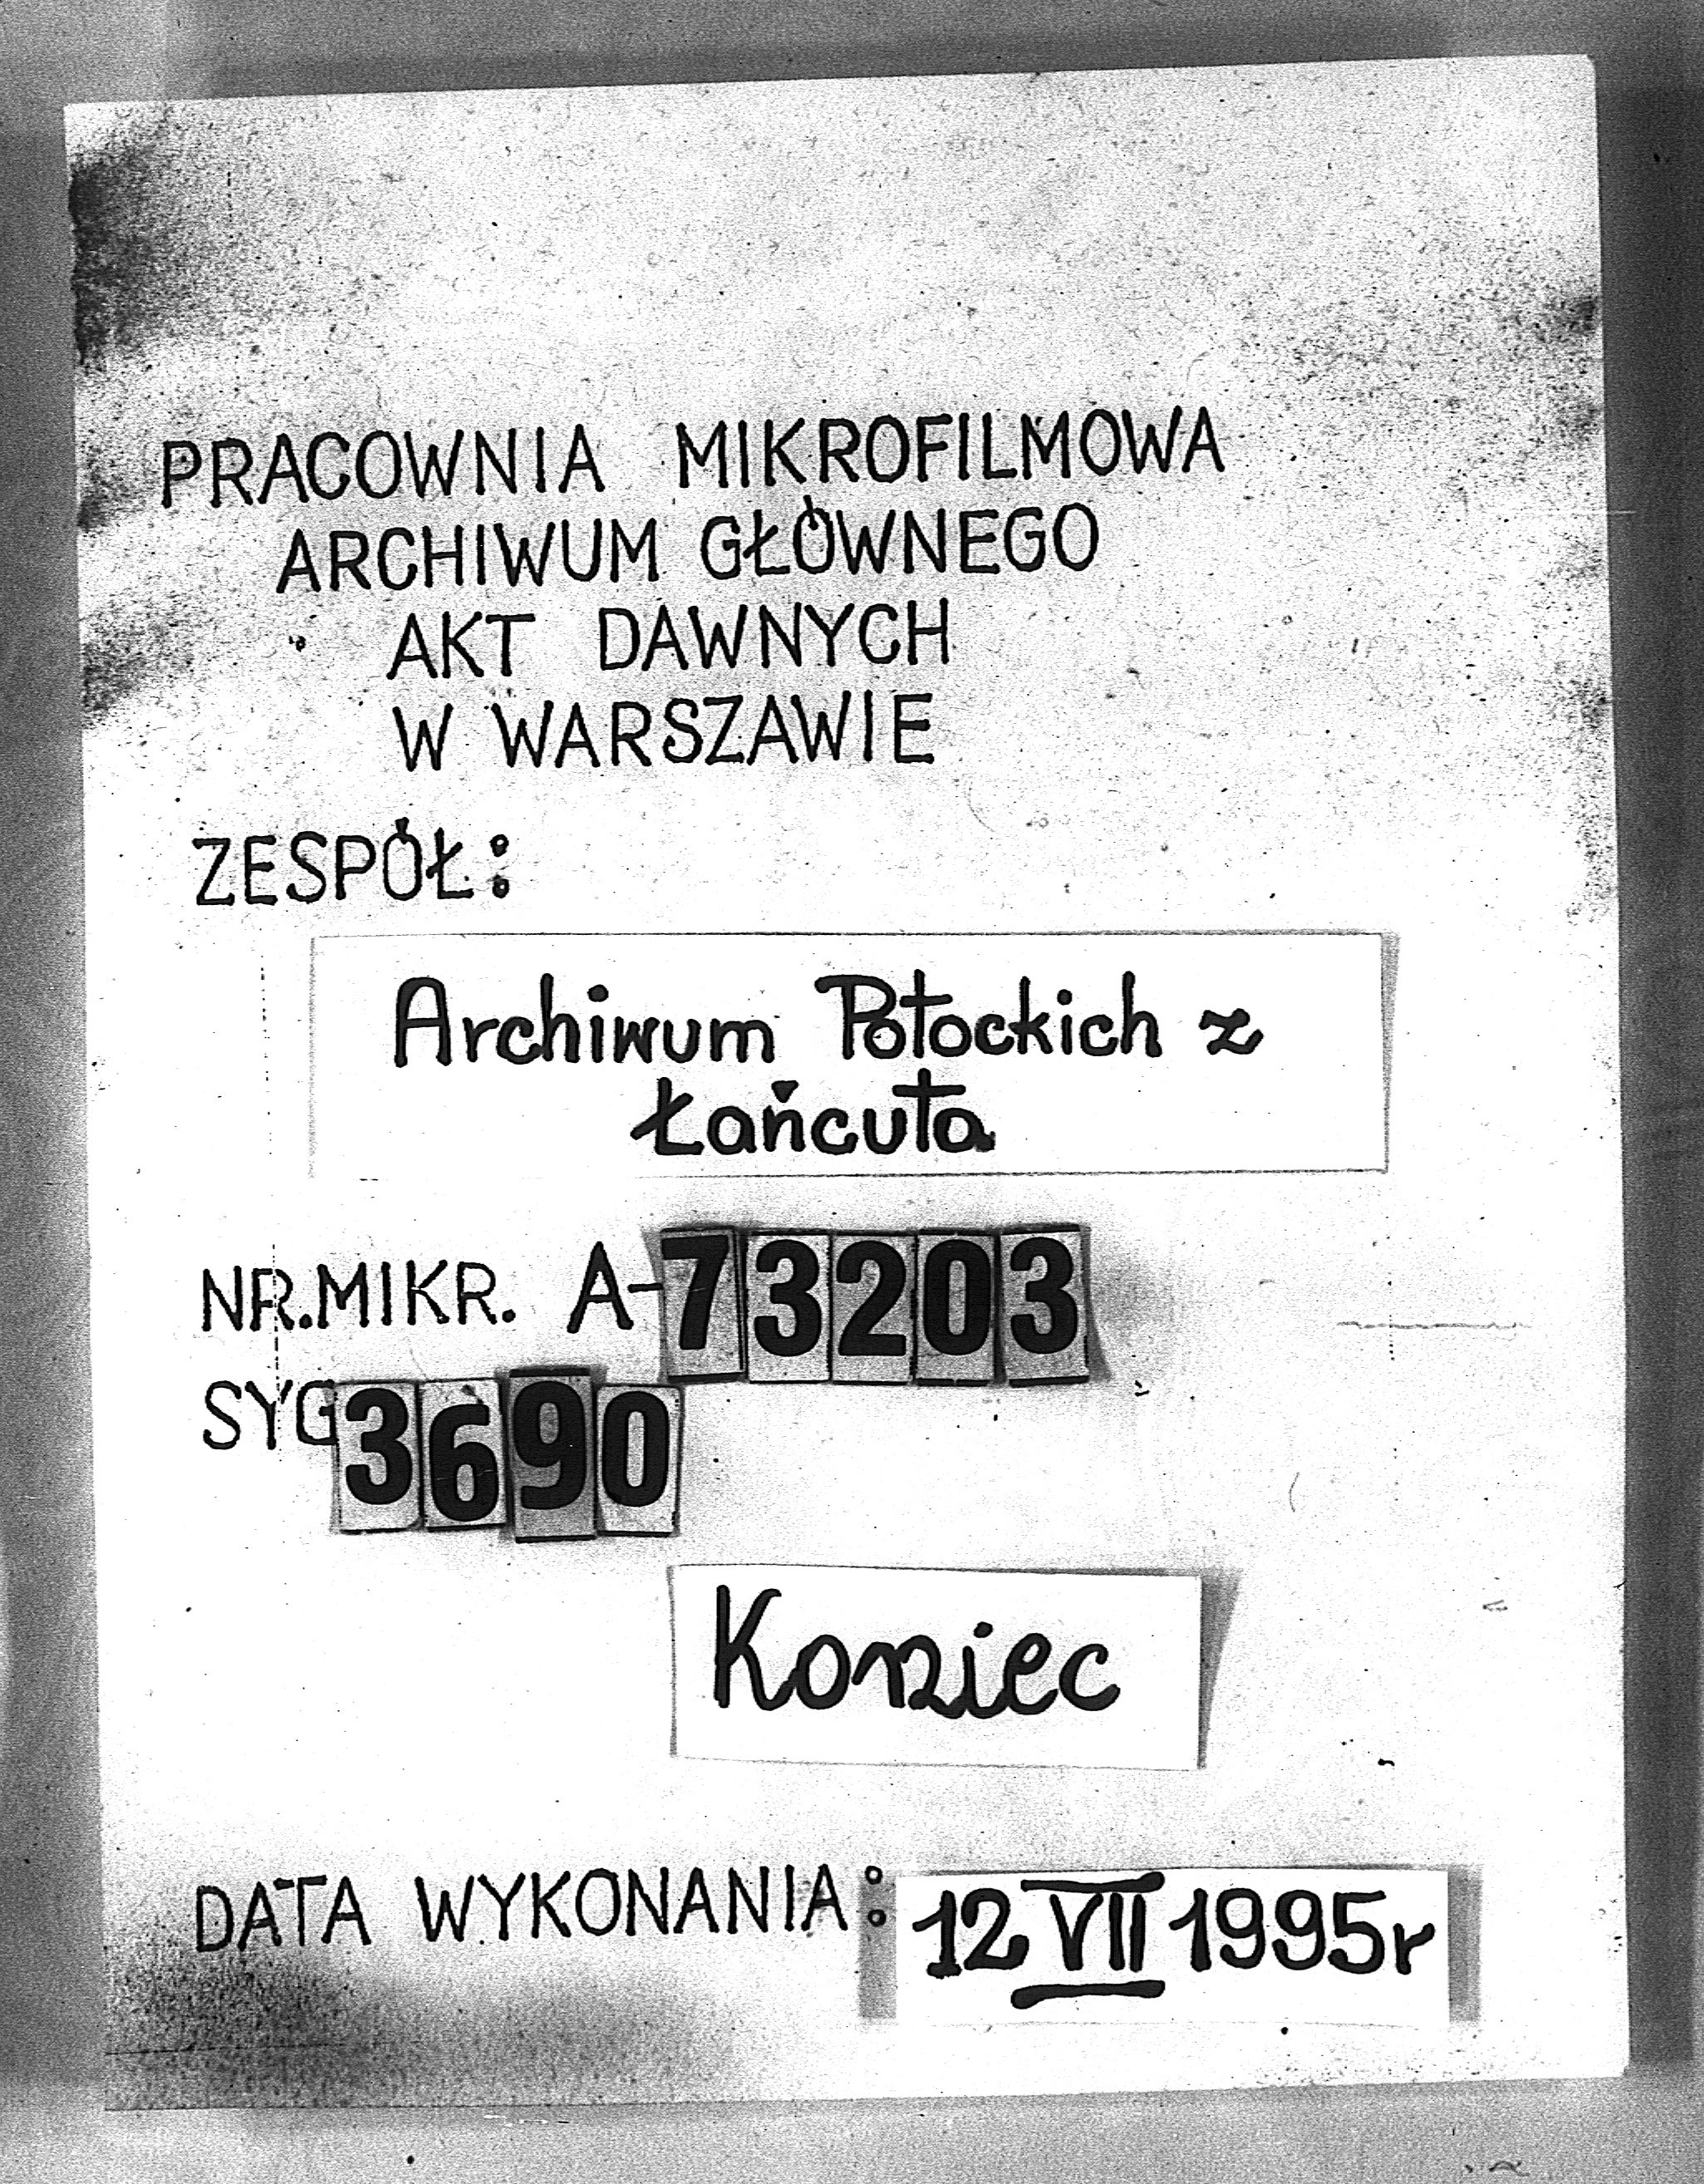 PRACOWNIA MIKROFILMOWA
ARCHIWUM GŁÓWNEGO
AKT DAWNYCH
W WARSZAWIE
ZESPÓŁ:
Archiwum Potockich z
Łańcuta
NR.MIKR. A-73203
SYG 3690
Koniec
DATA WYKONANIA: 12 VII 1995r